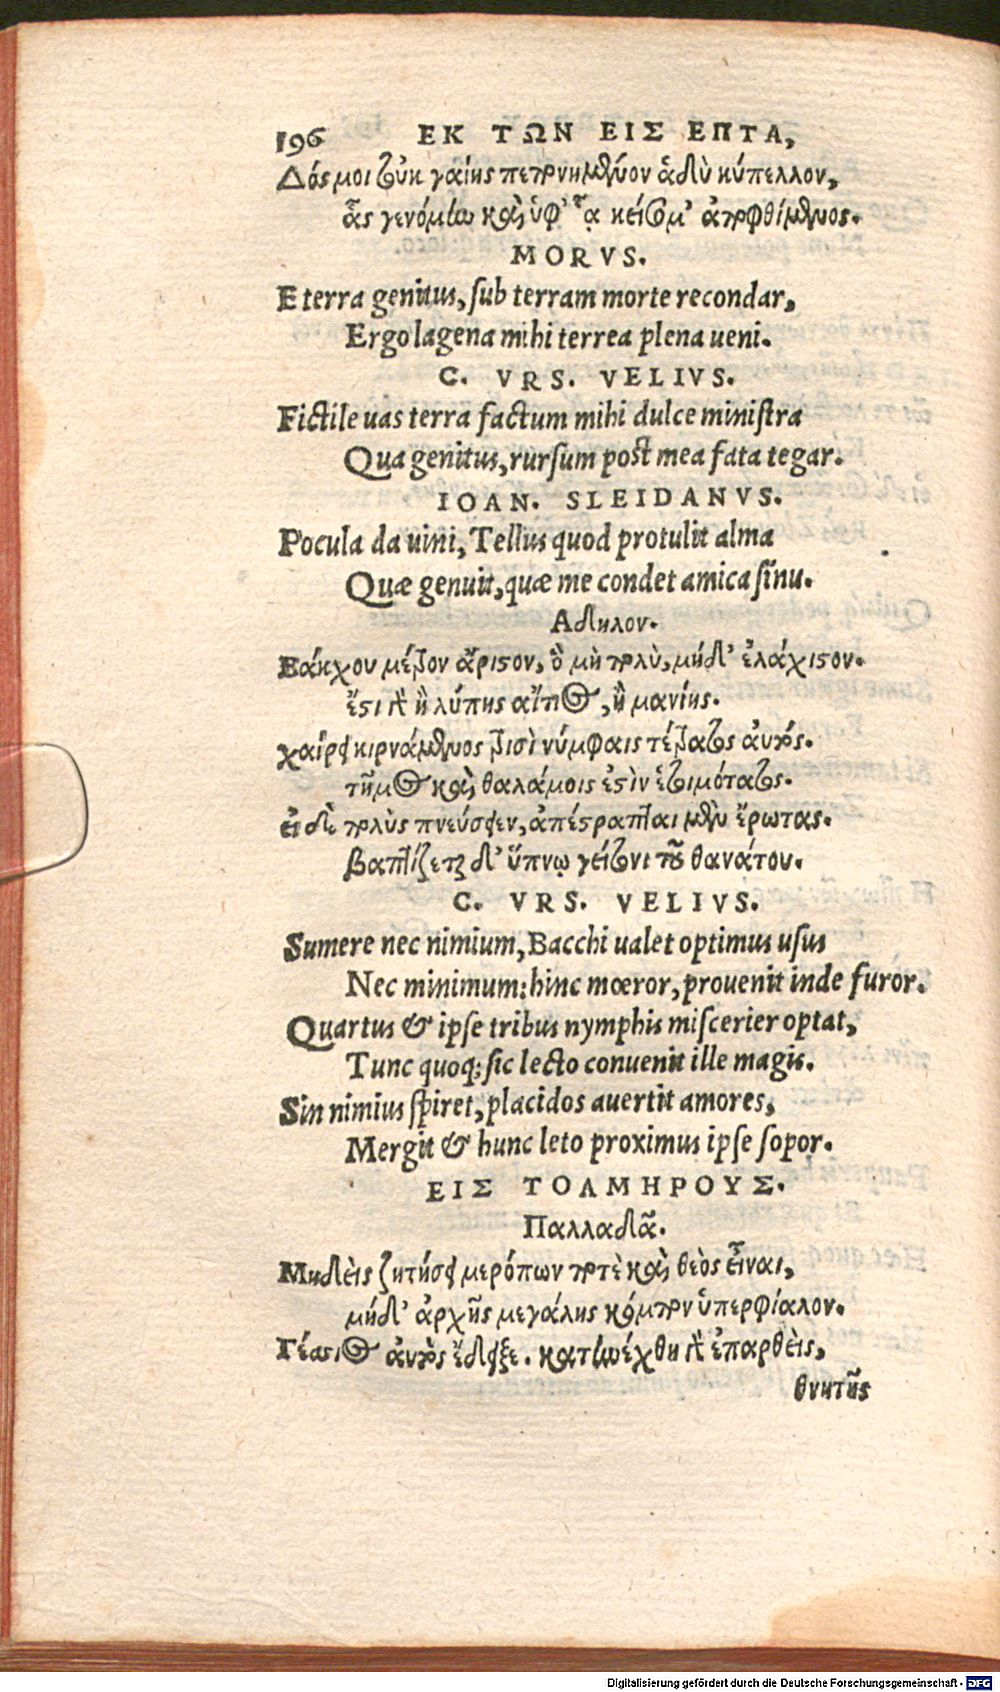 196 ΕΚ ΤΩΝ ΕΙΣ ΕΠΤΑ,
Δός μοι τοὐκ γαίης πεπονημένον ἁδὺ κύπελλον,
ἇς γενόμην καὶ ὑφ' ᾇ κείσομ' ἀποφθίμενος.
MORVS.
E terra genitus, sub terram morte recondar,
Ergo lagena mihi terrea plena ueni.
C. VRS. VELIVS.
Fictile uas terra factum mihi dulce ministra
Qua genitus, rursum post mea fata tegar.
IOAN. SLEIDANVS.
Pocula da uini, Tellus quod protulit alma
Quæ genuit, quæ me condet amica sinu.
Αδηλον.
Βάκχου μέτρον ἄριστον, ὃ μὴ πολὺ, μηδ' ἐλάχιστον.
ἔστι γὰρ ἢ λύπης αἴτιος, ἢ μανίης.
χαίρει κιρνάμενος τρισὶ νύμφαις τέτρατος αὐτός.
τῆμος καὶ θαλάμοις ἐστὶν ἑτοιμότατος.
εἰ δὲ πολὺς πνεύσειεν, ἀπέστραπται μὲν ἔρωτας.
βαπτίζεται δ' ὕπνῳ γείτονι τοῦ θανάτου.
C. VRS. VELIVS.
Sumere nec nimium, Bacchi ualet optimus usus
Nec minimum: hinc mœror, prouenit inde furor.
Quartus & ipse tribus nymphis miscerier optat,
Tunc quoq; sic lecto conuenit ille magis.
Sin nimius spiret, placidos auertit amores,
Mergit & hunc leto proximus ipse sopor.
ΕΙΣ ΤΟΛΜΗΡΟΥΣ.
Παλλαδᾶ.
Μηδεὶς ζητήσῃ μερόπων ποτὲ καὶ θεὸς εἶναι,
μήδ' ἀρχῆς μεγάλης κόμπον ὑπερφίαλον.
Γέσσιος αὐτὸς ἔδειξε. κατηνέχθη γὰρ ἐπαρθεὶς,
θνητῆς
Digitalisierung gefördert durch die Deutsche Forschungsgemeinschaft - DFG